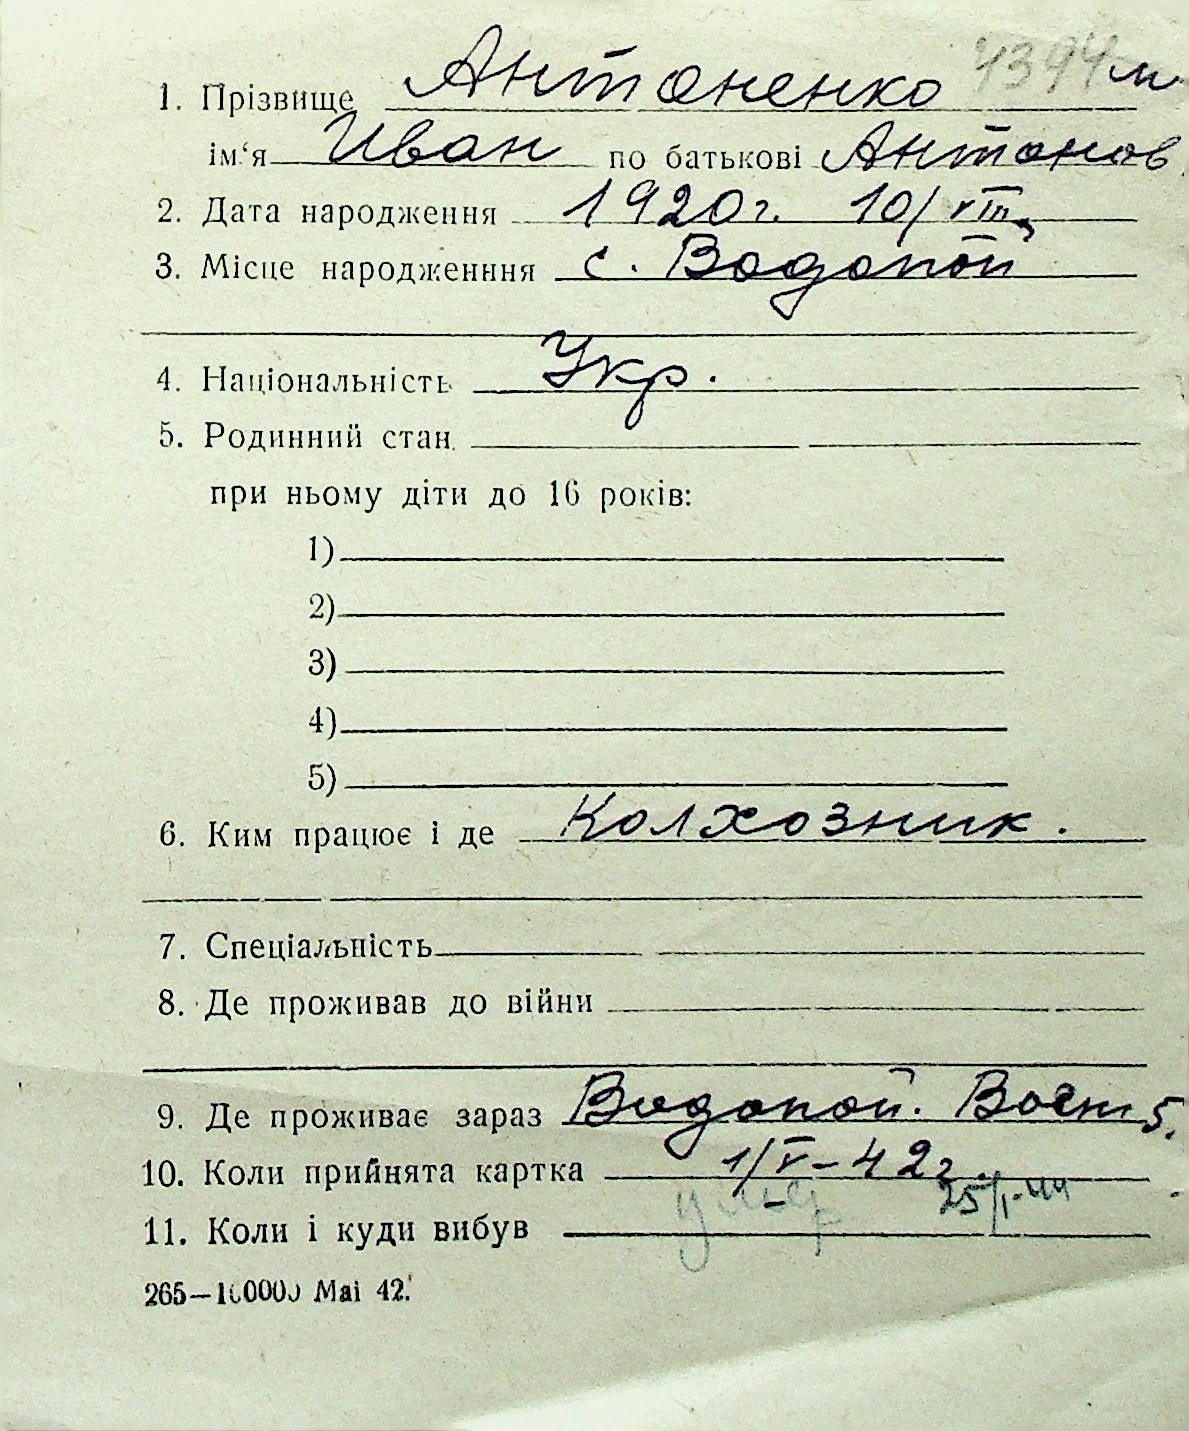 4394 м
1. Прізвище Антоненко
ім‘я Иван по батькові Антонов
2. Дата народження 1920г. 10/VIII
3. Місце народженння с. Водопой
4. Національність Укр.
5. Родинний стан
при ньому діти до 16 років:
1)
2)
3)
4)
5)
6. Ким працює і де Колхозник.
7. Спеціальність
8. Де проживав до війни
9. Де проживає зараз Водопой. Вост 5.
10. Коли прийнята картка 1/V-42г.
умер 25/I-44
11. Коли і куди вибув
265—100000 Mai 42.